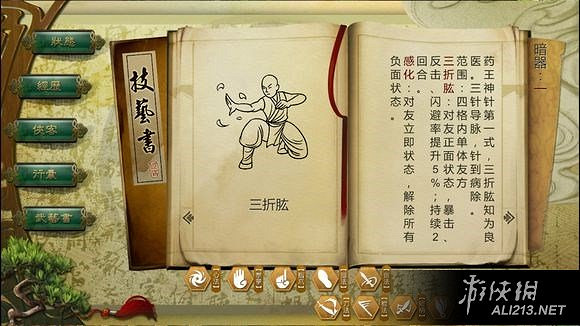 狀態
經歷
俠客
行囊
武藝書
技藝書
三折肱
暗器：一
药王神针第一式，三折肱知为良
医。三针导脉，针到病除。
范围：四格内单体友方
三折肱：对友正面状态，暴击、
反击、闪避率提升5%；持续2
回合。
感化：对友立即状态，解除所有
负面状态。
游侠網
ALI213.NET